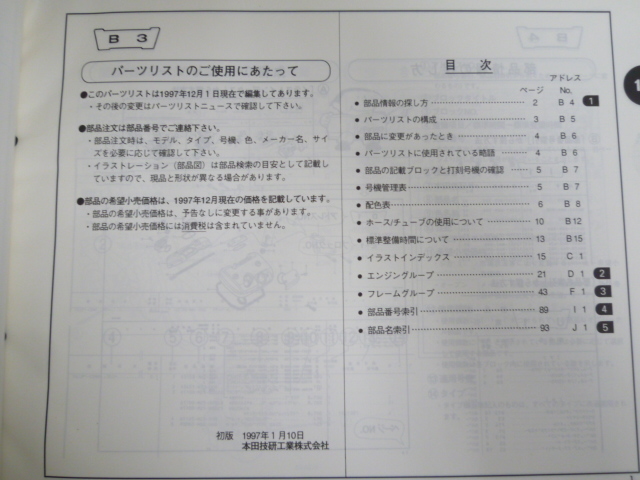 B 3
パーツリストのご使用にあたって
●このパーツリストは1997年12月1日現在で編集してあります。
・その後の変更はパーツリストニュースで確認して下さい。
●部品注文は部品番号でご連絡下さい。
・部品注文時は、モデル、タイプ、号機、色、メーカー名、サイ
ズを必要に応じて確認して下さい。
・イラストレーション（部品図）は部品検索の目安として記載し
ていますので、現品と形状が異なる場合があります。
●部品の希望小売価格は、1997年12月現在の価格を記載しています。
・部品の希望小売価格は、予告なしに変更する事があります。
・部品の希望小売価格には消費税は含まれていません。
初版 1997年1月10日
本田技研工業株式会社
目 次
アドレス
ページ No.
● 部品情報の探し方 2 B 4 1
● パーツリストの構成 3 B 5
● 部品に変更があったとき 4 B 6
● パーツリストに使用されている略語 4 B 6
● 部品の記載ブロックと打刻号機の確認 5 B 7
● 号機管理表 5 B 7
● 配色表 6 B 8
● ホース/チューブの使用について 10 B12
● 標準整備時間について 13 B15
● イラストインデックス 15 C 1
● エンジングループ 21 D 1 2
● フレームグループ 43 F 1 3
● 部品番号索引 89 I 1 4
● 部品名索引 93 J 1 5
1